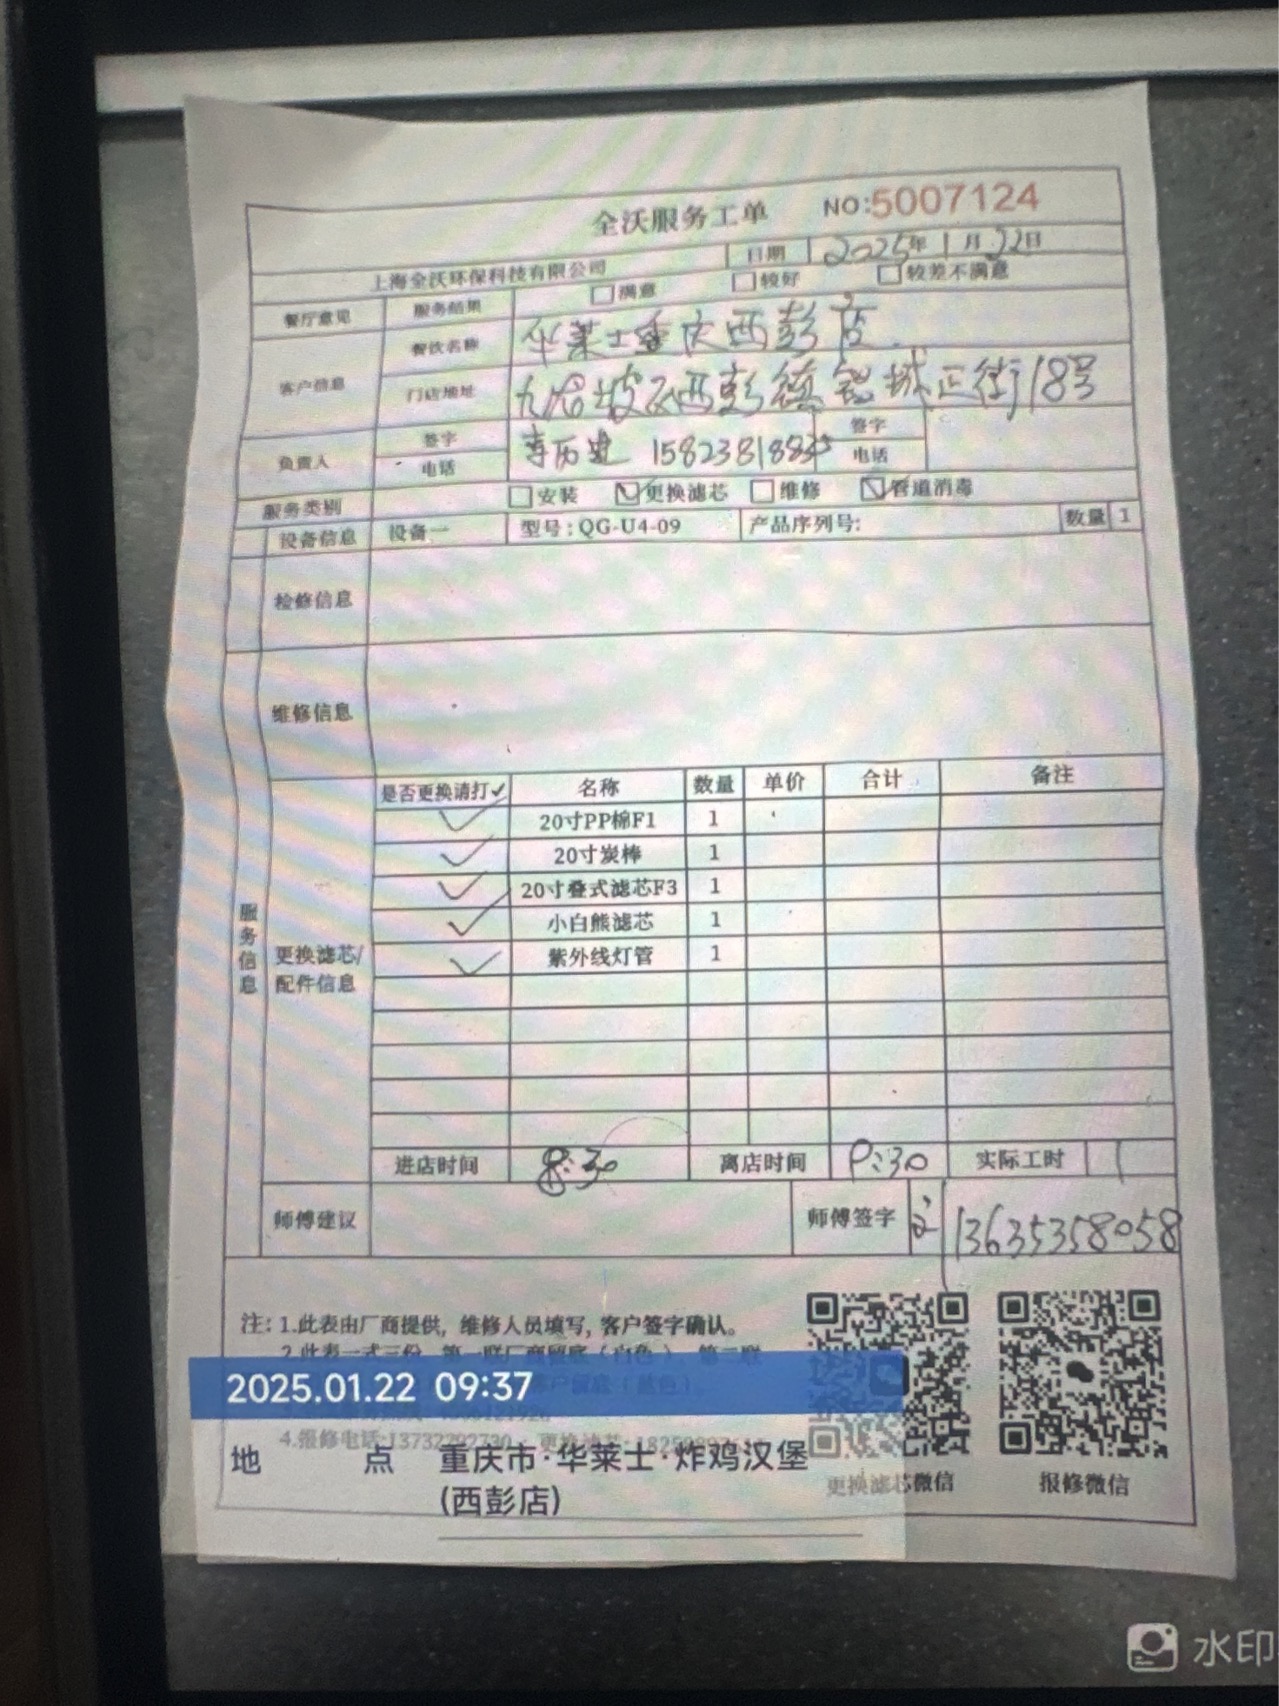 全沃服务工单 NO:5007124
上海全沃环保科技有限公司 日期 2025年1月22日
餐厅意见 服务结果 □满意 □较好 □较差不满意
客户信息 餐饮名称 华莱士重庆西彭店
门店地址 九龙坡区西彭镇铝城正街18号
负责人 签字 李历建 签字
电话 电话
服务类别 □安装 ☑更换滤芯 □维修 ☑管道消毒
设备信息 设备一 型号:QG-U4-09 产品序列号: 数量 1
检修信息
维修信息
服务信息
更换滤芯/配件信息
是否更换请打✓ 名称 数量 单价 合计 备注
✓ 20寸PP棉F1 1
✓ 20寸炭棒 1
✓ 20寸叠式滤芯F3 1
✓ 小白熊滤芯 1
✓ 紫外线灯管 1
进店时间 8:30 离店时间 9:30 实际工时 1
师傅建议 师傅签字 13635358058
注: 1.此表由厂商提供, 维修人员填写, 客户签字确认。
2.此表一式三份, 第一联厂商留底(白色), 第二联
4.报修电话:13732292730
更换滤芯微信 报修微信
2025.01.22 09:37
地点 重庆市·华莱士·炸鸡汉堡
(西彭店)
水印